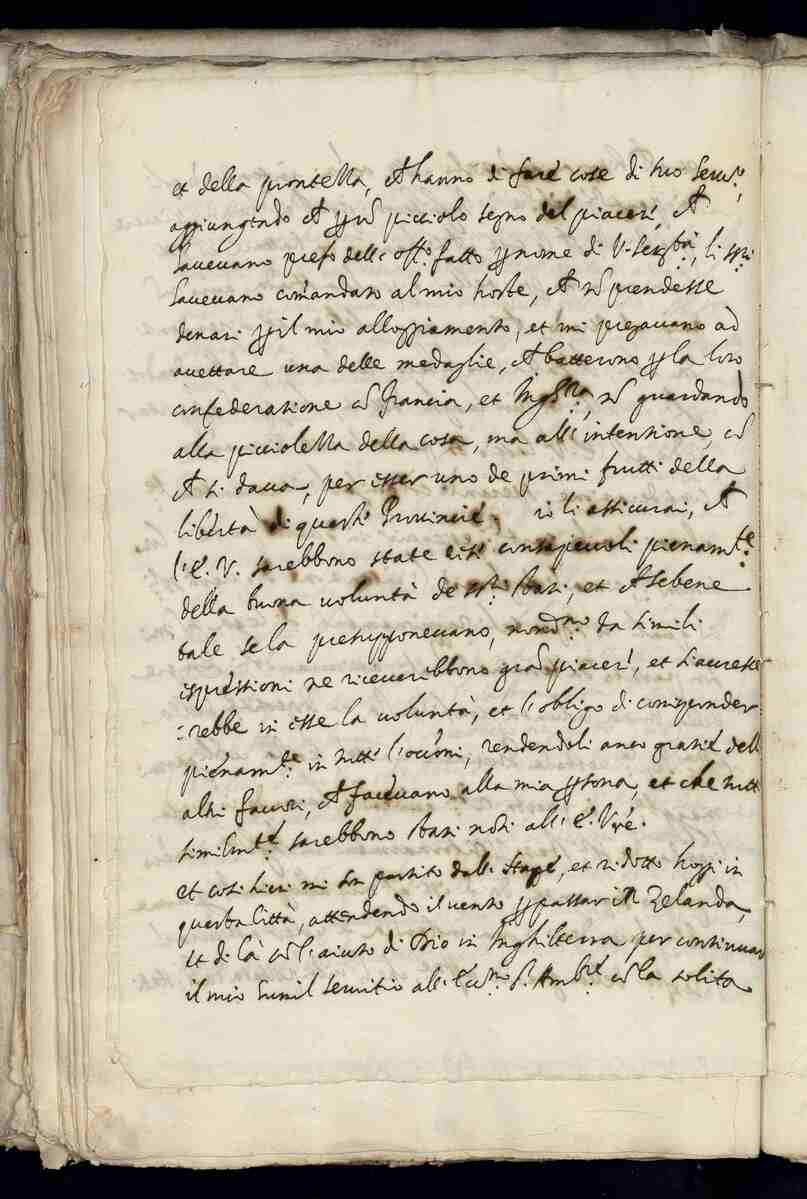 et della prontezza, ch'hanno di fare cose di suo serv.º,
aggiungendo ch' per un picciolo segno del piacere, ch'
havevano preso dell' off.º fatto per nome di V. Ser.tà, li ss.ri
havevano comandato al mio hoste, ch' nō prendesse
denari per il mio alloggiamento, et mi pregavano ad
accettare una delle medaglie, ch' batterono per la loro
confederatione cō Francia, et Inghil.ra, nō guardando
alla picciolezza della cosa, ma all' intentione, cō
ch' si dava, per esser uno de primi frutti della
libertà di queste Provincie. io li assicurai, ch'
l'E. V. sarebbono state consapevoli pienam.te
della buona voluntà de ss.ri Stati, et ch' sebene
tale se la presupponevano, nond.no da simili
espressioni ne riceverebbono grā piacere, et s'accresce-
:rebbe in esse la voluntà, et l'obligo di corrisponder
pienam.te in tutte l'occ.oni, rendendoli anco gratie dell
altri favori, ch' facevano alla mia persona, et che tutt
similm.te sarebbono stati noti all' E. V.re.
et così hieri mi son partito dall' Haya, et ridotto hoggi in
questa Città, attendendo il vento per passar in Zelanda,
et di là cō l'aiuto di Dio in Inghilterra per continuar
il mio humil servitio all' Ecc.mo S. Amb.re cō la solita